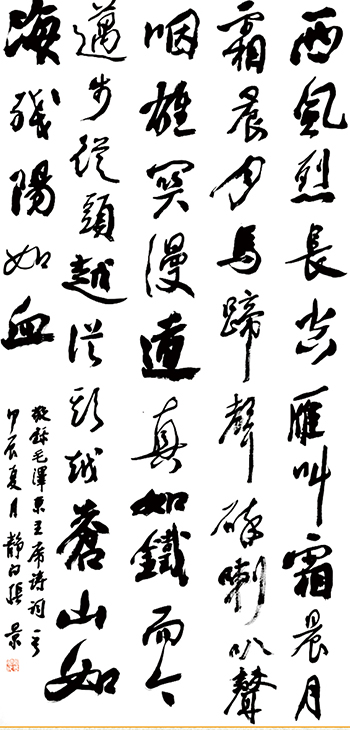 西風烈長空雁叫霜晨月
霜晨月馬蹄聲碎喇叭聲
咽雄關漫道真如鐵而今
邁步從頭越從頭越蒼山如
海殘陽如血
敬錄毛澤東主席詩詞
甲辰夏月靜